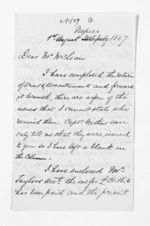 Napier
1st August 1867
Dear Mr McLean
I have completed the return
of Arms & Accoutrements and forward
it herewith, there are a few of the
names that I cannot state who
received them Captn Withers can
only tell me that they were issued
to you so I have left a blank in
the Column.
I have enclosed Mr
Taylors acct. the
has been paid and the present